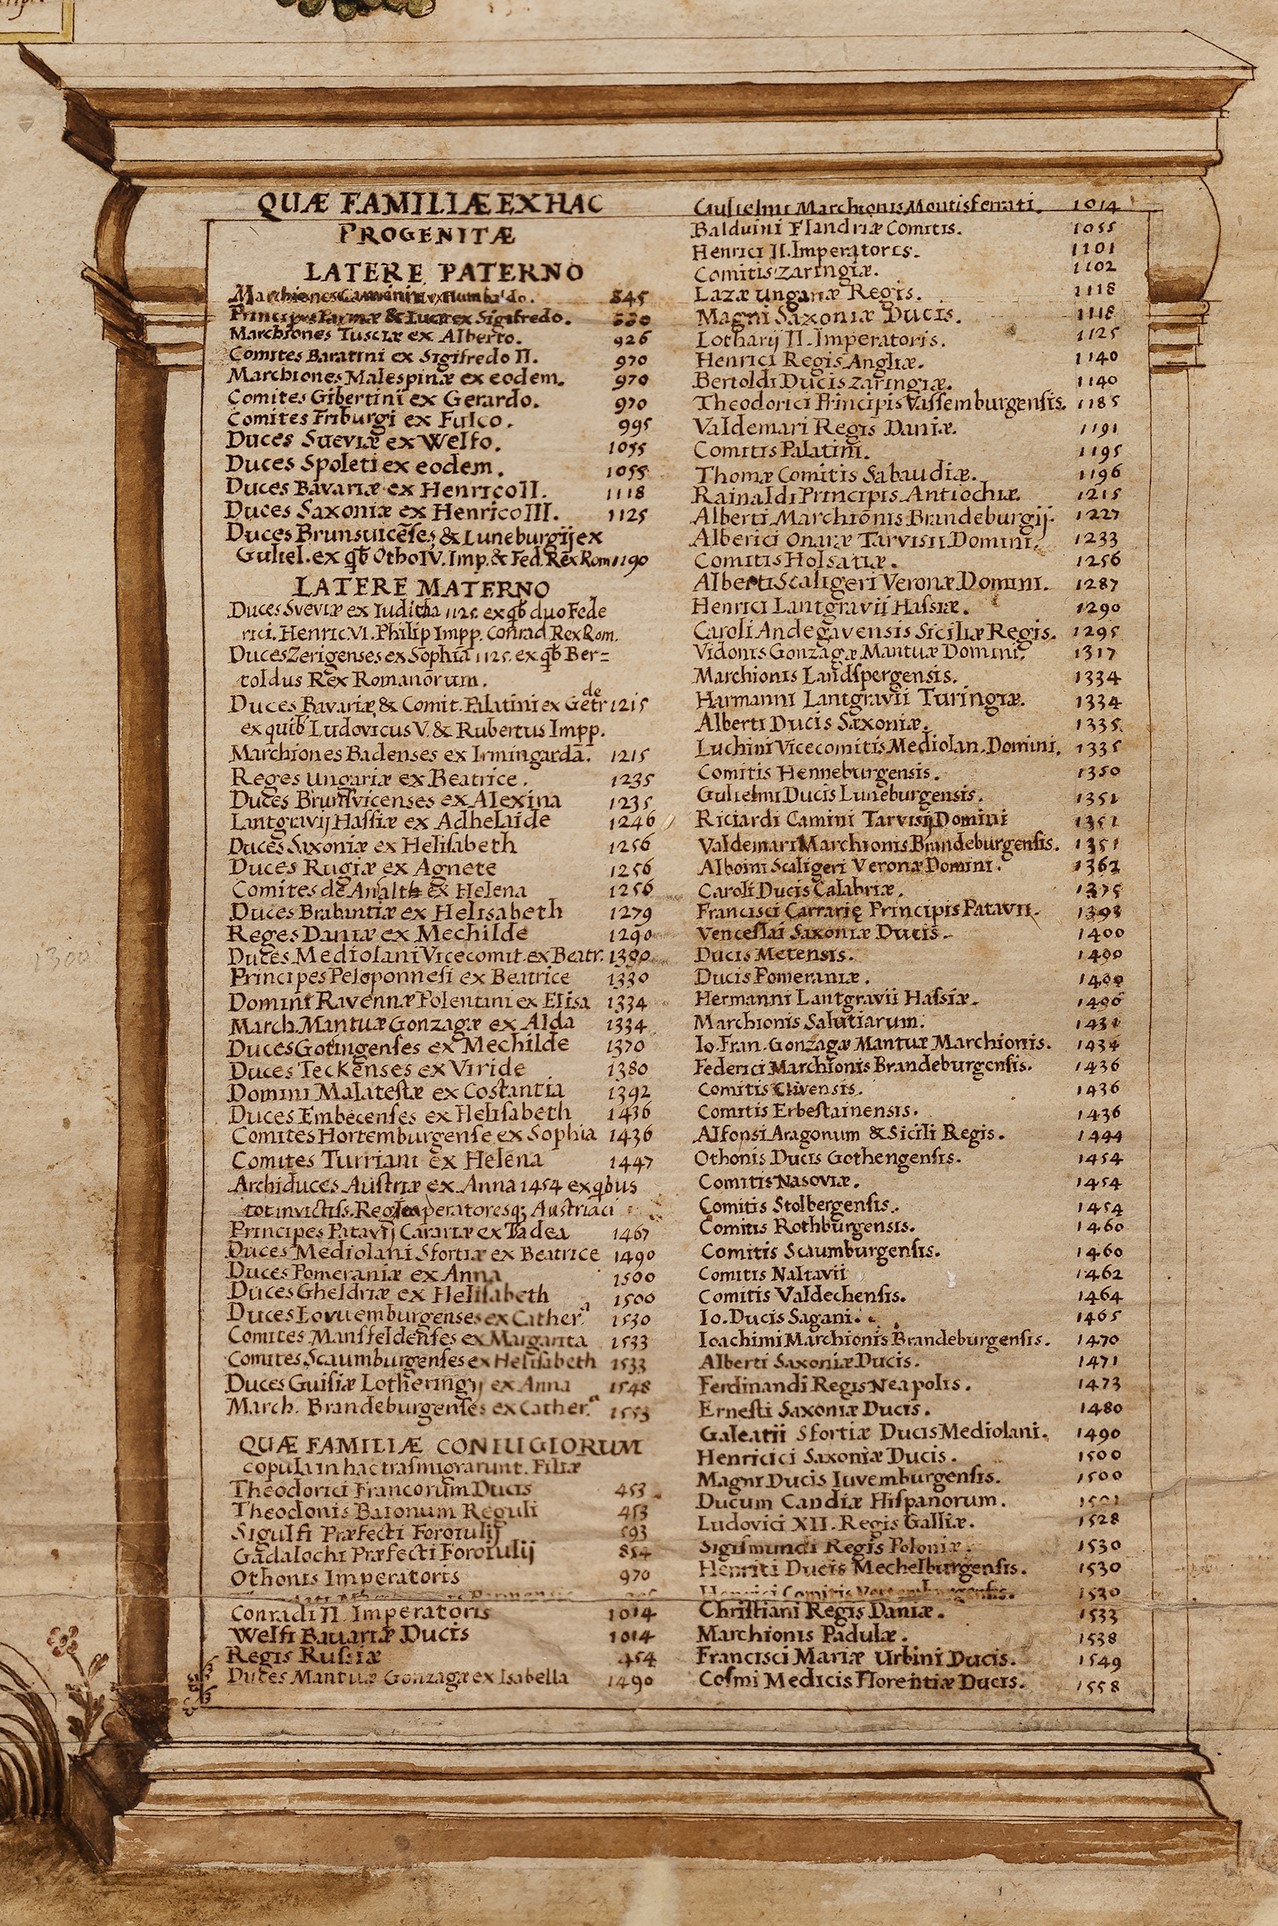 QUÆ FAMILIÆ EX HAC
PROGENITÆ
LATERE PATERNO
Marchiones 845
Principes Parmæ & Lucæ ex Sigifredo.
Marchiones Tusciæ ex Alberto. 926
Comites Baratini ex Sigifredo II. 970
Marchiones Malespinæ ex eodem. 970
Comites Gibertini ex Gerardo. 970
Comites Friburgi ex Fulco. 995
Duces Sueviæ ex Welfo. 1055
Duces Spoleti ex eodem. 1055
Duces Bavariæ ex Henrico II. 1118
Duces Saxoniæ ex Henrico III. 1125
Duces Brunsuicēses & Luneburgij ex
Guliel. ex qb Otho IV. Imp. & Fed. Rex Rom 1190
LATERE MATERNO
Duces Sveviæ ex Iuditha 1125. ex qb duo Fede
rici. Henric VI. Philip Impp. Conrad Rex Rom.
Duces Zerigenses ex Sophia 1125. ex qb Ber=
toldus Rex Romanorum.
Duces Bavariæ & Comit. Palatini ex Getr de 1215
ex quib Ludovicus V. & Rubertus Impp.
Marchiones Badenses ex Irmingarda. 1215
Reges Ungariæ ex Beatrice. 1235
Duces Brunsvicenses ex Alexina 1235
Lantgravij Hassiæ ex Adhelaide 1246
Duces Saxoniæ ex Helisabeth 1256
Duces Rugiæ ex Agnete 1256
Comites de Analth ex Helena 1256
Duces Brabantiæ ex Helisabeth 1279
Reges Daniæ ex Mechilde 1290
Duces Mediolani Vicecomit. ex Beatr. 1300
Principes Peloponnesi ex Beatrice 1330
Domini Ravennæ Polentini ex Elisa 1334
March. Mantuæ Gonzagæ ex Alda 1334
Duces Gotingenses ex Mechilde 1370
Duces Teckenses ex Viride 1380
Domini Malatestæ ex Costantia 1392
Duces Embecenses ex Helisabeth 1436
Comites Hortemburgense ex Sophia 1436
Comites Turriani ex Helena 1447
Archiduces Austriæ ex Anna 1454 ex qbus
tot invictiss. Reg Imperatoresq; Austriaci
Principes Patavij Carariæ ex Tadea 1467
Duces Mediolani Sfortiæ ex Beatrice 1490
Duces Pomeraniæ ex Anna 1500
Duces Gheldriæ ex Helisabeth 1500
Duces Lovuemburgenses ex Cather.a 1530
Comites Mansfeldenses ex Margarita 1533
Comites Scaumburgenses ex Helisabeth 1533
Duces Guisiæ Lotheringij ex Anna 1548
March. Brandeburgenses ex Cather.a 1553
QUÆ FAMILIÆ CONIUGIORUM
copula in hac trasmigrarunt. Filiæ
Theodorici Francorum Ducis 453
Theodonis Baionum Reguli 453
Sigulfi Præfecti Foroiulij 593
Gadalochi Præfecti Foroiulij 854
Othonis Imperatoris 970
Conradi II. Imperatoris 1014
Welfi Bavariæ Ducis 1014
Regis Russiæ 454
Duces Mantuæ Gonzagæ ex Isabella 1490
Gulielmi Marchionis Montisferrati. 1014
Balduini Flandriæ Comitis. 1055
Henrici II. Imperatoris. 1101
Comitis zaringiæ. 1102
Lazæ Ungariæ Regis. 1118
Magni Saxoniæ Ducis. 1118
Lotharij II. Imperatoris. 1125
Henrici Regis Angliæ. 1140
Bertoldi Ducis zaringiæ. 1140
Theodorici Principis Vassemburgensis. 1185
Valdemari Regis Daniæ. 1191
Comitis Palatini. 1195
Thomæ Comitis Sabaudiæ. 1196
Rainaldi Principis Antiochiæ. 1215
Alberti Marchionis Brandeburgij. 1227
Alberici Onaræ Tarvisii Domini. 1233
Comitis Holsatiæ. 1256
Alberti Scaligeri Veronæ Domini. 1287
Henrici Lantgravij Hassiæ. 1290
Caroli Andegavensis Siciliæ Regis. 1295
Vidonis Gonzagæ Mantuæ Domini. 1317
Marchionis Landspergensis. 1334
Harmanni Lantgravii Turingiæ. 1334
Alberti Ducis Saxoniæ. 1335
Luchini Vicecomitis Mediolan. Domini. 1335
Comitis Henneburgensis. 1350
Gulielmi Ducis Luneburgensis. 1351
Riciardi Camini Tarvisij Domini 1351
Valdemari Marchionis Brandeburgensis. 1351
Alboini Scaligeri Veronæ Domini. 1362
Caroli Ducis Calabriæ. 1375
Francisci Carrarię Principis Patavii. 1398
Venceslai Saxoniæ Ducis. 1400
Ducis Metensis. 1400
Ducis Pomeraniæ. 1400
Hermanni Lantgravii Hassiæ. 1406
Marchionis Salutiarum. 1431
Io. Fran. Gonzagæ Mantuæ Marchionis. 1434
Federici Marchionis Brandeburgensis. 1436
Comitis Clivensis. 1436
Comitis Erbestainensis. 1436
Alfonsi Aragonum & Sicili Regis. 1444
Othonis Ducis Gothengensis. 1454
Comitis Nasoviæ. 1454
Comitis Stolbergensis. 1454
Comitis Rothburgensis. 1460
Comitis Scaumburgensis. 1460
Comitis Naltavii 1462
Comitis Valdechensis. 1464
Io. Ducis Sagani. 1465
Ioachimi Marchionis Brandeburgensis. 1470
Alberti Saxoniæ Ducis. 1471
Ferdinandi Regis Neapolis. 1473
Ernesti Saxoniæ Ducis. 1480
Galeatii Sfortiæ Ducis Mediolani. 1490
Henricici Saxoniæ Ducis. 1500
Magni Ducis Iuvemburgensis. 1500
Ducum Candiæ Hispanorum. 1501
Ludovici XII. Regis Galliæ. 1528
Sigismundi Regis Poloniæ. 1530
Henriti Ducis Mechelburgensis. 1530
Henrici Comitis 1530
Christiani Regis Daniæ. 1533
Marchionis Padulæ. 1538
Francisci Mariæ Urbini Ducis. 1549
Cosmi Medicis Florentiæ Ducis. 1558
1300